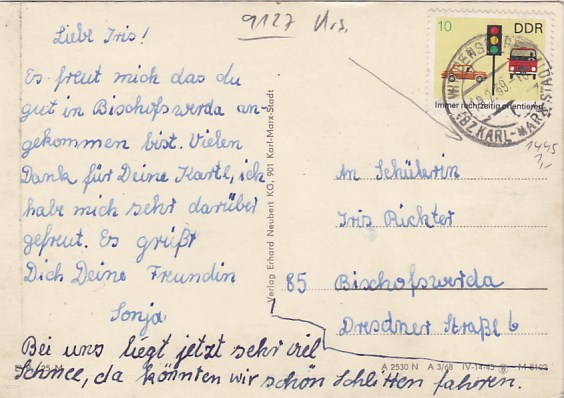 9127
Liebe Iris!
Es freut mich das du
gut in Bischofswerda an-
gekommen bist. Vielen
Dank für Deine Karte, ich
habe mich sehr darüber
gefreut. Es grüßt
Dich Deine Freundin
Sonja
Bei uns liegt jetzt sehr viel
Schnee, da könnten wir schön Schlitten fahren.
Verlag Erhard Neubert KG, 901 Karl-Marx-Stadt
10 DDR
Immer rechtzeitig orientieren!
BZ KARL-MARX-STADT
1445
1,-
An Schülerin
Iris Richter
85 Bischofswerda
Dresdner Straße 6
A 2530 N A 3/68 IV-14-45 M 6102